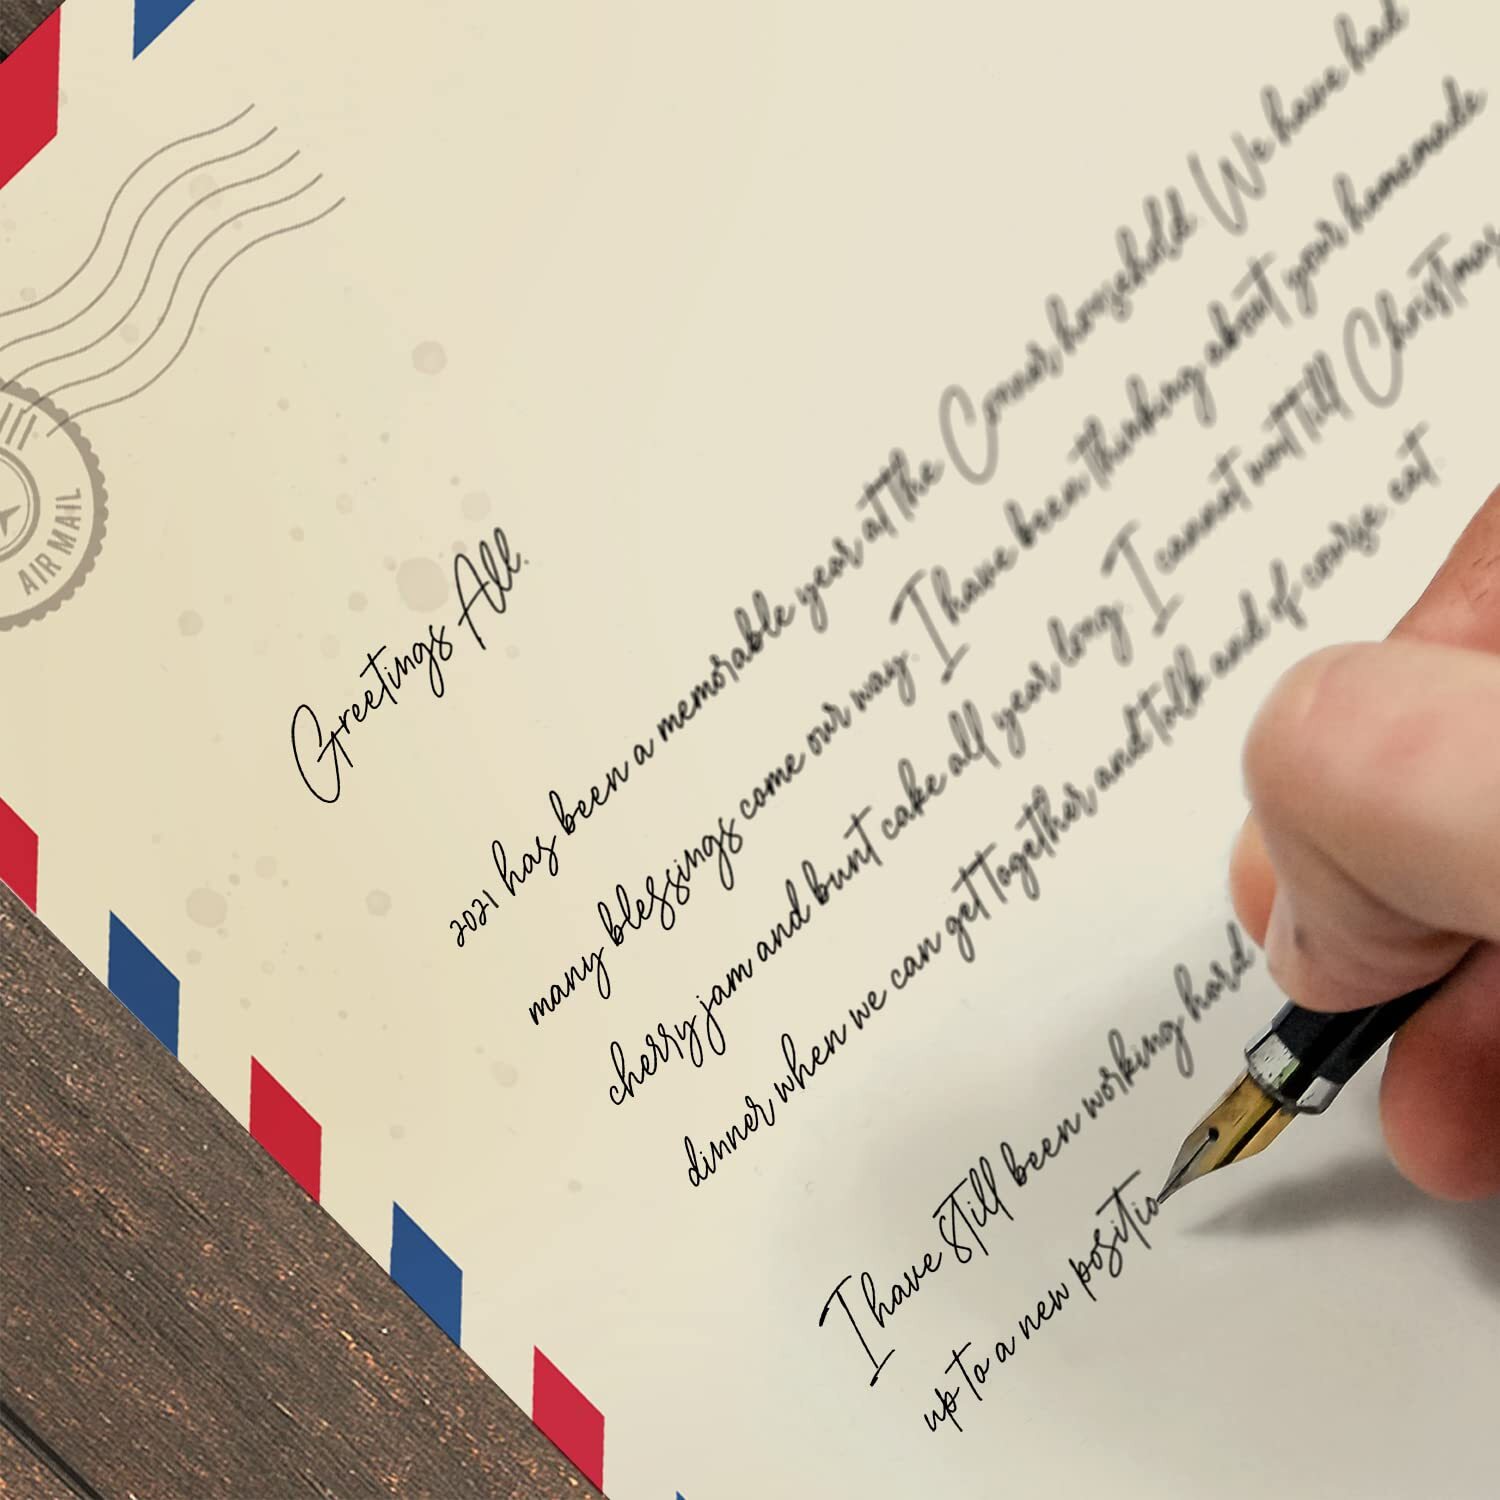 AIR MAIL
Greetings All.
2021 has been a memorable year at the Connor household We have had
many blessings come our way. I have been thinking about your homemade
cherry jam and bunt cake all year long I cannot wait till Christmas
dinner when we can get together and talk and of course eat
I have still been working hard
up to a new positio